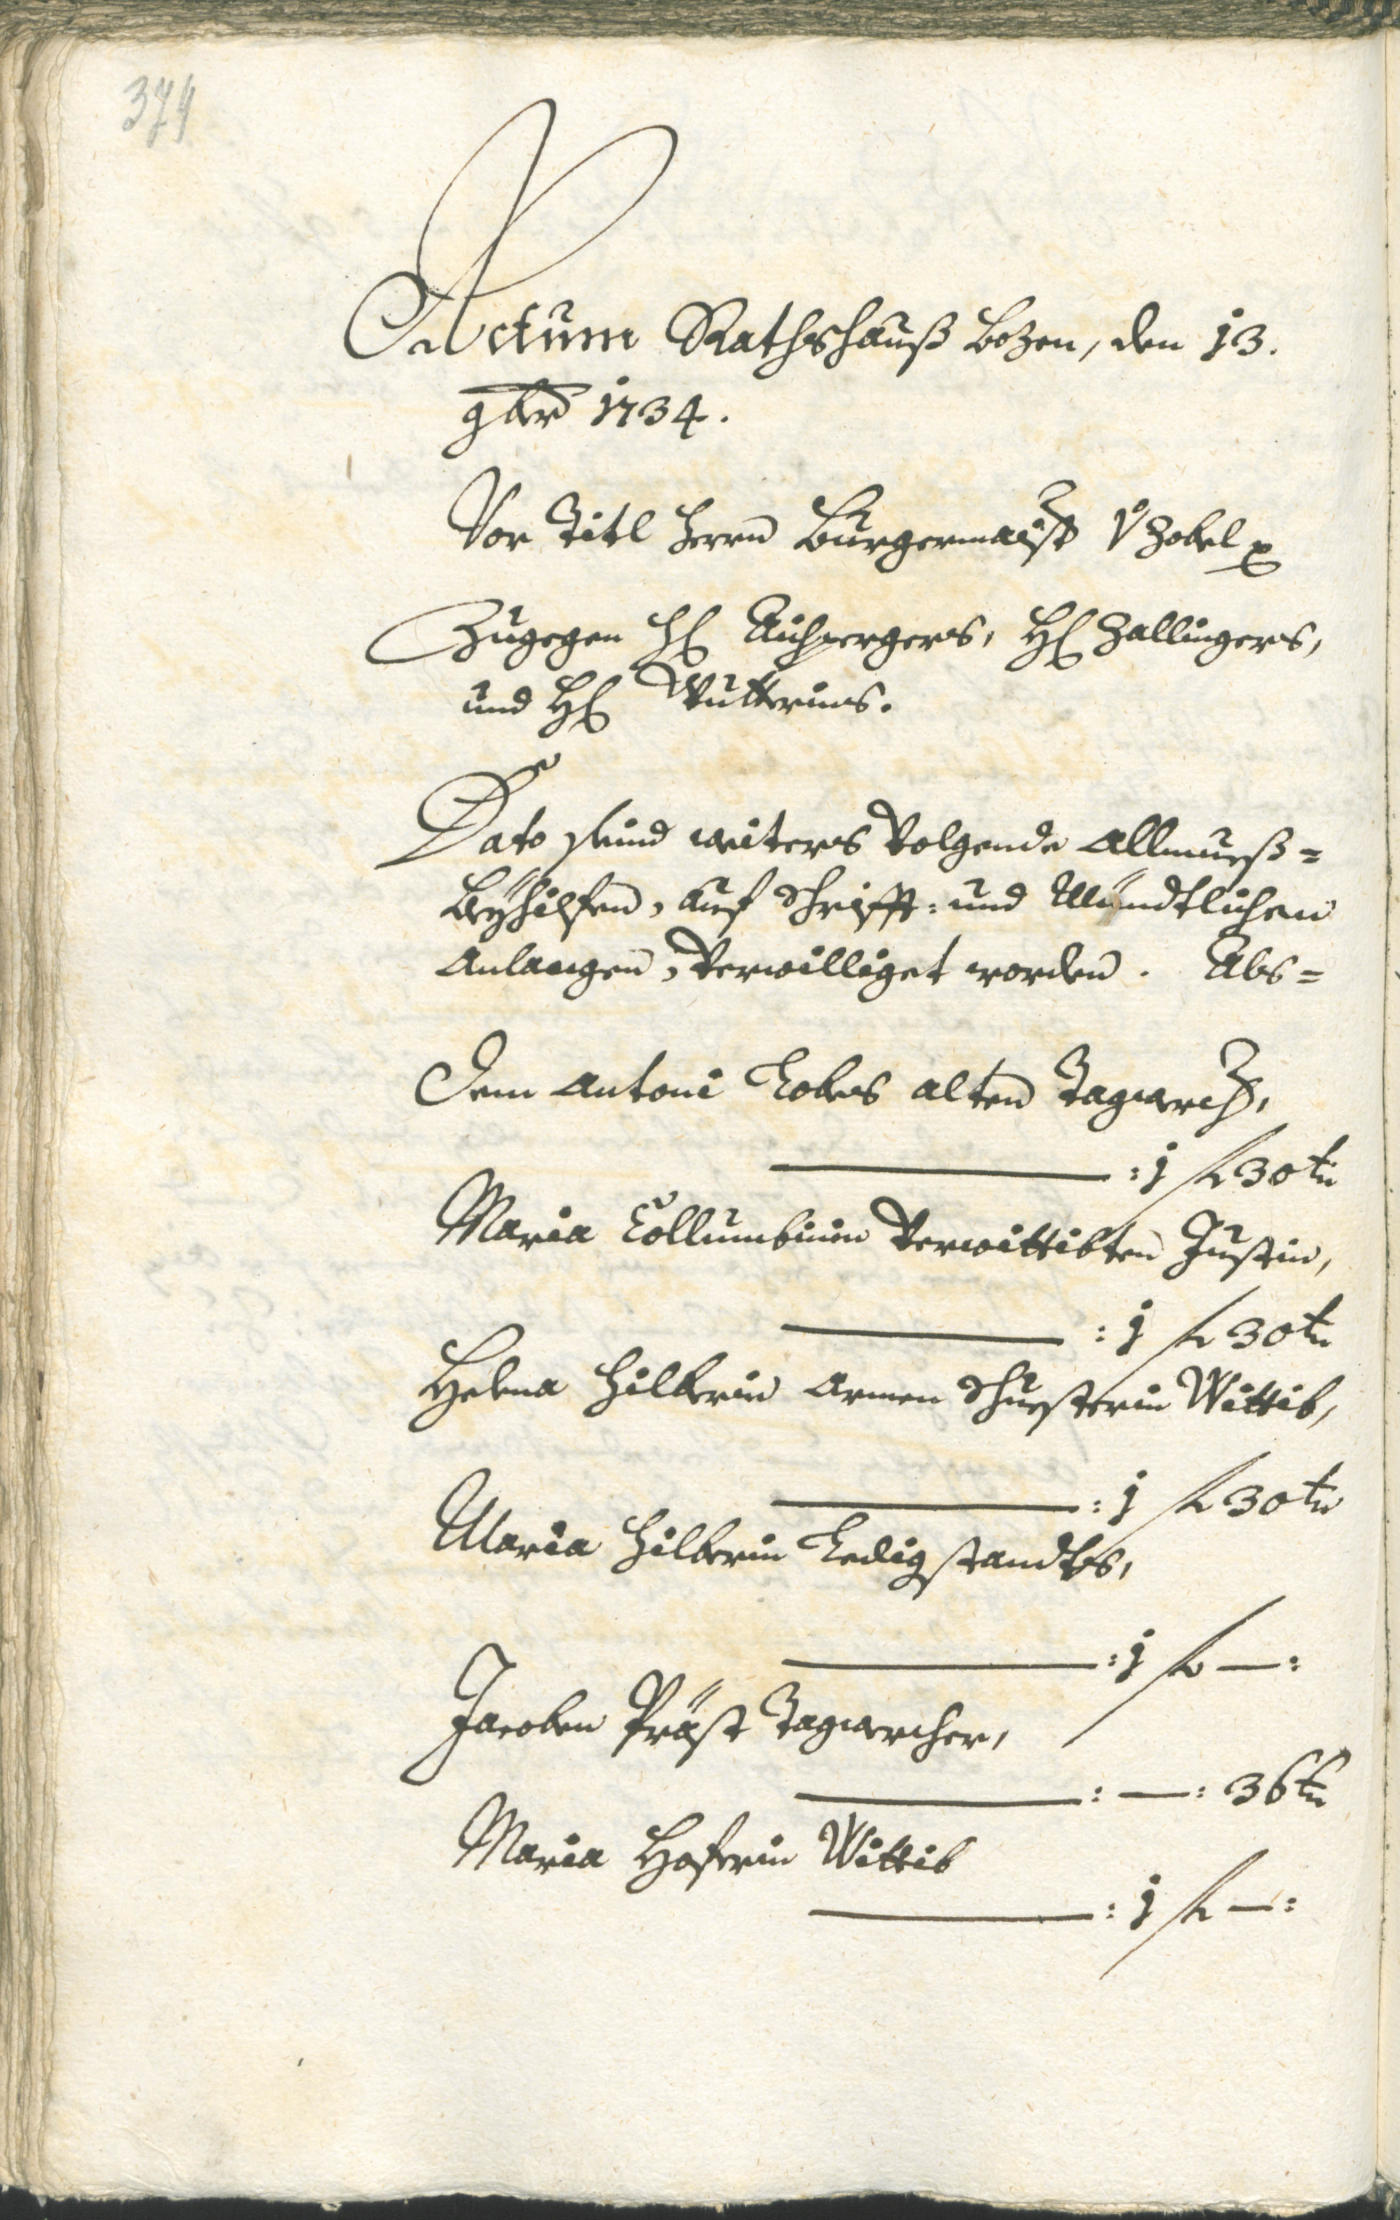 374
Actum Rathshauß Bozen, den 13.
9ber 1734.
Vor Titl Herrn Burgermaist v Zobel
Zugegen H Aichpergers, H Zallingers,
und H Mutterius.
Dato seind weiters Volgende Allmueß=
Beÿhilfen, auf Schrifft: und Mündtlichen
Anlangen, Verwilliget worden. Als=
Dem Antoni Lobes alten Tagwerch,
: 1 f 30 kr
Maria Collumbinin Verwittibten Justin,
: 1 f 30 kr
Helena Hilberin armen Schuesterin Wittib,
: 1 f 30 kr
Maria Hilberin Ledig standts,
: 1 f — :
Jacoben Präst Tagwercher,
: — : 36 kr
Maria Hoferin Wittib
: 1 f — :